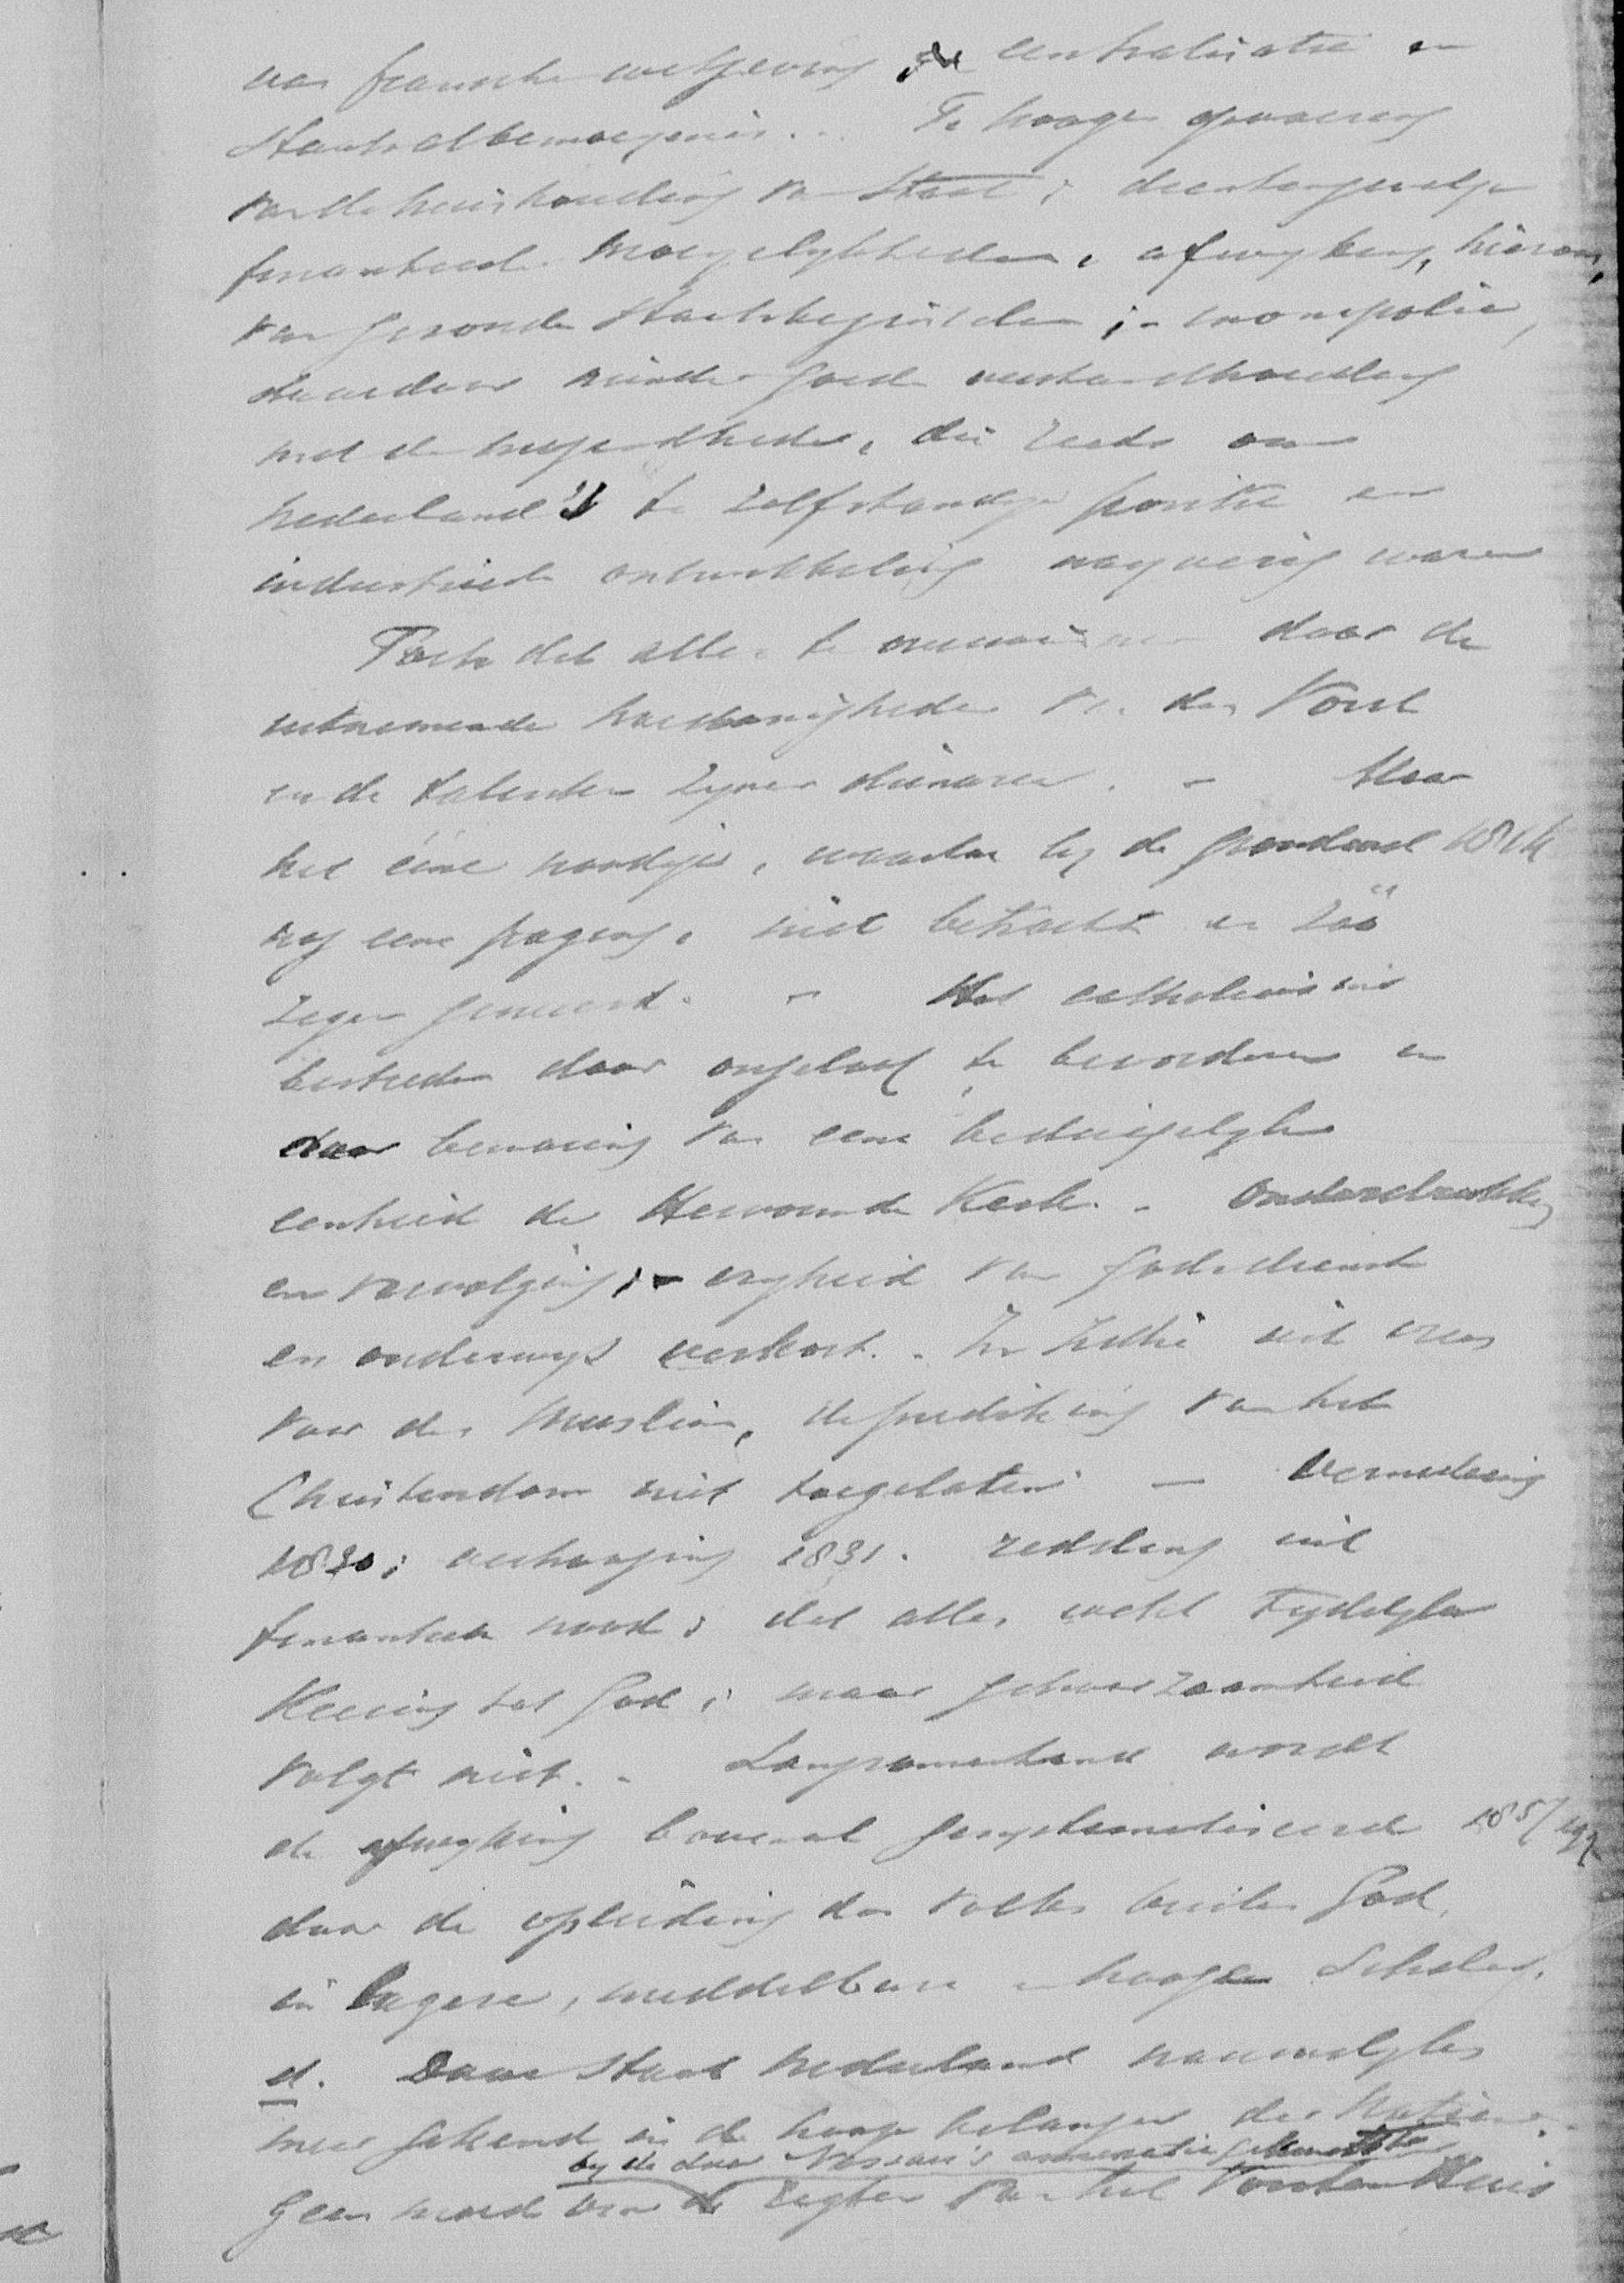 van fransche wetgeving, de centralisatie en
Staatsalbemoeyenis. . . Te hooge opvoering
van de huishouding van Staat; dientengevolge
financieele moeyelykheden, afwyking, hierom,
van gezonde Staatsbeginselen; - monopolie,
daardoor minder goede verstandhouding
met de mogendheden, die reeds om
Nederland's te zelfstandige positie en
industrieele ontwikkeling nayverig waren
Toch dit alles te overwinnen door de
uitnemende hoedanigheden van den Vorst
en de talenten zyner dienaren. - Maar
het ééne noodige, waartoe by de grondwet 1814
nog eene poging, niet betracht en zóó
zegen geweerd. - Het catholicisme
bestreden door ongeloof te bevorderen en
door bewaring van eene bedriegelyke
eenheid de Hervormde Kerk. - Onderdrukking
en vervolging; - vryheid van godsdienst
en onderwys verkort. - In Indië uit vrees
voor den Muslim, de prediking van het
Christendom niet toegelaten - Vernedering
1830; verhooging 1831. redding uit
financieele nood; dit alles wekt tydelyke
Keering tot God; maar gehoorzaamheid
volgt niet. - Langzamerhand wordt
de afwyking bovenal gesystematiseerd 1857
door de opleiding des volks buiten God,
in lagere, middelbare en hooge Scholen.
d. Daar staat Nederland nauwelyks
meer gekend in de hooge belangen der Natiën.
by de door Nassau's annexatie gekwetste
Geen woord voor de regten van het Vorsten Huis